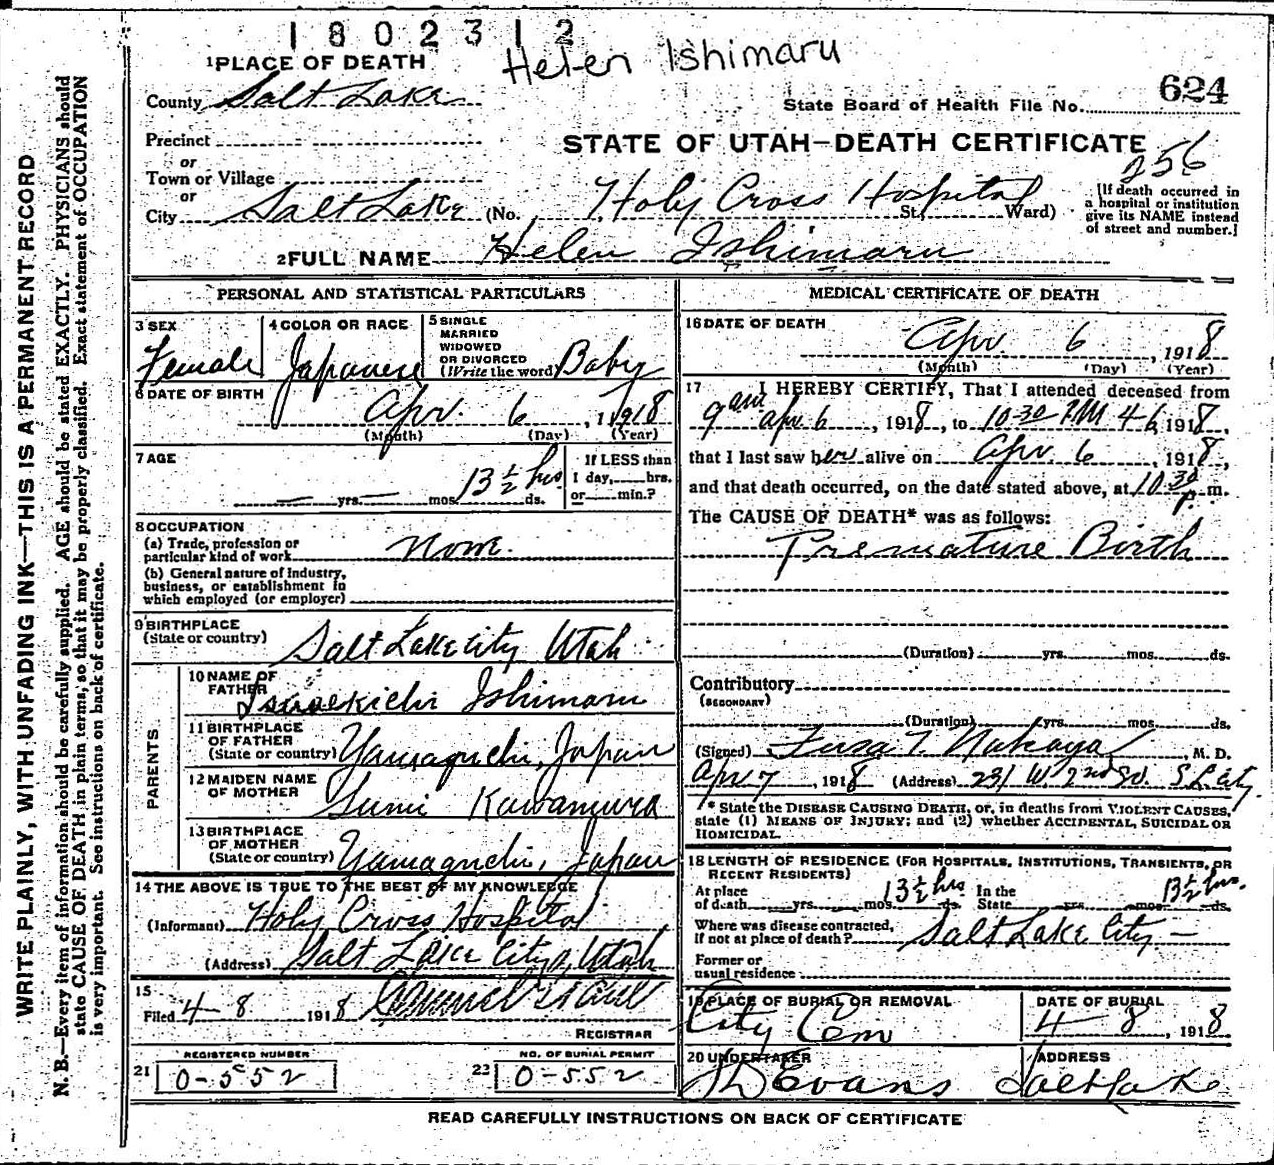 1802312
Helen Ishimaru
1 PLACE OF DEATH
County Salt Lake
State Board of Health File No. 624
Precinct
STATE OF UTAH—DEATH CERTIFICATE
256
or
Town or Village
or
City Salt Lake (No. Holy Cross Hospital St. Ward)
[If death occurred in
a hospital or institution
give its NAME instead
of street and number.]
2 FULL NAME Helen Ishimaru
PERSONAL AND STATISTICAL PARTICULARS
3 SEX
Female
4 COLOR OR RACE
Japanese
5 SINGLE
MARRIED
WIDOWED
OR DIVORCED
(Write the word) Baby
6 DATE OF BIRTH
Apr. 6, 1918
(Month) (Day) (Year)
7 AGE
— yrs. — mos. 13½ hrs ds.
If LESS than
1 day, hrs.
or min.?
8 OCCUPATION
(a) Trade, profession or
particular kind of work None.
(b) General nature of industry,
business, or establishment in
which employed (or employer)
9 BIRTHPLACE
(State or country) Salt Lake City Utah
PARENTS
10 NAME OF
FATHER Ishimaru
11 BIRTHPLACE
OF FATHER
(State or country) Yamaguchi, Japan
12 MAIDEN NAME
OF MOTHER Sumi Kawamura
13 BIRTHPLACE
OF MOTHER
(State or country) Yamaguchi, Japan
14 THE ABOVE IS TRUE TO THE BEST OF MY KNOWLEDGE
(Informant) Holy Cross Hospital
(Address) Salt Lake City, Utah
15
Filed 4-8 1918
REGISTRAR
REGISTERED NUMBER
21 0-552
NO. OF BURIAL PERMIT
22 0-552
MEDICAL CERTIFICATE OF DEATH
16 DATE OF DEATH
Apr. 6, 1918
(Month) (Day) (Year)
17 I HEREBY CERTIFY, That I attended deceased from
9 am Apr. 6, 1918, to 10 30 P.M 4-6, 1918,
that I last saw her alive on Apr. 6, 1918,
and that death occurred, on the date stated above, at 10 30 P. m.
The CAUSE OF DEATH* was as follows:
Premature Birth
(Duration) yrs. mos. ds.
Contributory
(SECONDARY)
(Duration) yrs. mos. ds.
(Signed) T. Nakaya, M. D.
Apr 7, 1918 (Address) 231 W. 2nd So. S L City.
* State the DISEASE CAUSING DEATH, or, in deaths from VIOLENT CAUSES,
state (1) MEANS OF INJURY; and (2) whether ACCIDENTAL, SUICIDAL OR
HOMICIDAL.
18 LENGTH OF RESIDENCE (FOR HOSPITALS, INSTITUTIONS, TRANSIENTS, OR
RECENT RESIDENTS)
At place
of death yrs. mos. 13½ hrs ds. In the
State yrs. mos. 13½ hrs. ds.
Where was disease contracted,
if not at place of death? Salt Lake City —
Former or
usual residence
19 PLACE OF BURIAL OR REMOVAL
City Cem
DATE OF BURIAL
4 8, 1918
20 UNDERTAKER
Evans
ADDRESS
Salt Lake
READ CAREFULLY INSTRUCTIONS ON BACK OF CERTIFICATE
WRITE PLAINLY, WITH UNFADING INK—THIS IS A PERMANENT RECORD
N. B.—Every item of information should be carefully supplied. AGE should be stated EXACTLY. PHYSICIANS should
state CAUSE OF DEATH in plain terms, so that it may be properly classified. Exact statement of OCCUPATION
is very important. See instructions on back of certificate.